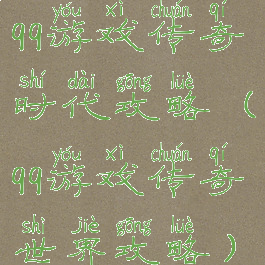 yóu xì chuán qí
99游戏传奇
shí dài gōng lüè
时代攻略（
yóu xì chuán qí
99游戏传奇
shì jiè gōng lüè
世界攻略）